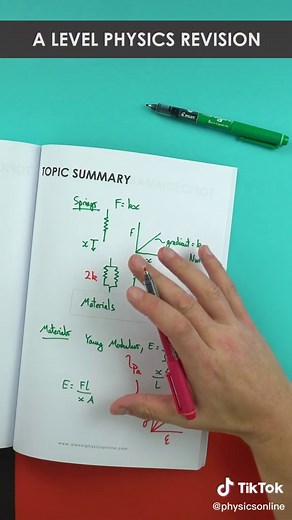 A LEVEL PHYSICS REVISION
TOPIC SUMMARY
Springs F = kx
F
gradient = k
x
x
2k
Materials
Materials Young Modulus, E =
Pa
x
L
E = FL
x A
σ
ε
www.alevelphysicsonline.com
TikTok
@physicsonline